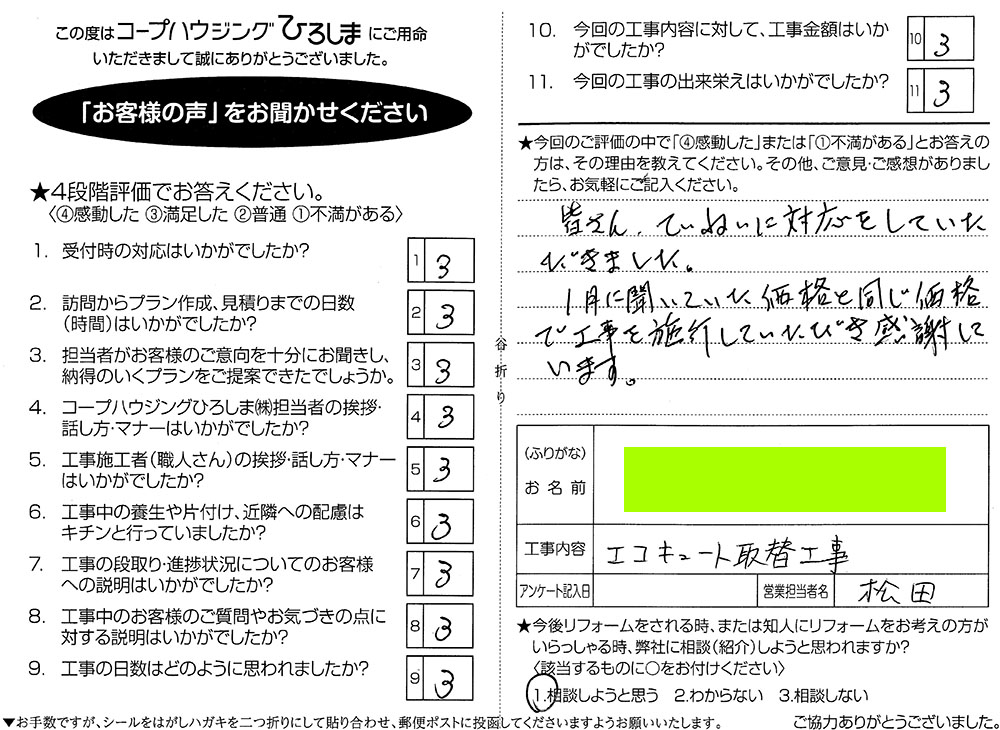 この度はコープハウジングひろしまにご用命
いただきまして誠にありがとうございました。
「お客様の声」をお聞かせください
★4段階評価でお答えください。
〈④感動した ③満足した ②普通 ①不満がある〉
1. 受付時の対応はいかがでしたか?
1 3
2. 訪問からプラン作成、見積りまでの日数
(時間)はいかがでしたか?
2 3
3. 担当者がお客様のご意向を十分にお聞きし、
納得のいくプランをご提案できたでしょうか。
3 3
4. コープハウジングひろしま㈱担当者の挨拶・
話し方・マナーはいかがでしたか?
4 3
5. 工事施工者(職人さん)の挨拶・話し方・マナー
はいかがでしたか?
5 3
6. 工事中の養生や片付け、近隣への配慮は
キチンと行っていましたか?
6 3
7. 工事の段取り・進捗状況についてのお客様
への説明はいかがでしたか?
7 3
8. 工事中のお客様のご質問やお気づきの点に
対する説明はいかがでしたか?
8 3
9. 工事の日数はどのように思われましたか?
9 3
谷折り
10. 今回の工事内容に対して、工事金額はいか
がでしたか?
10 3
11. 今回の工事の出来栄えはいかがでしたか?
11 3
★今回のご評価の中で「④感動した」または「①不満がある」とお答えの
方は、その理由を教えてください。その他、ご意見・ご感想がありまし
たら、お気軽にご記入ください。
皆さん、ていねいに対応をしていた
だきました。
1月に聞いていた価格と同じ価格
で工事を施行していただき感謝して
います。
(ふりがな)
お名前
工事内容 エコキュート取替工事
アンケート記入日 営業担当者名 松田
★今後リフォームをされる時、または知人にリフォームをお考えの方が
いらっしゃる時、弊社に相談(紹介)しようと思われますか?
〈該当するものに○をお付けください〉
1.相談しようと思う 2.わからない 3.相談しない
▼お手数ですが、シールをはがしハガキを二つ折りにして貼り合わせ、郵便ポストに投函してくださいますようお願いいたします。
ご協力ありがとうございました。